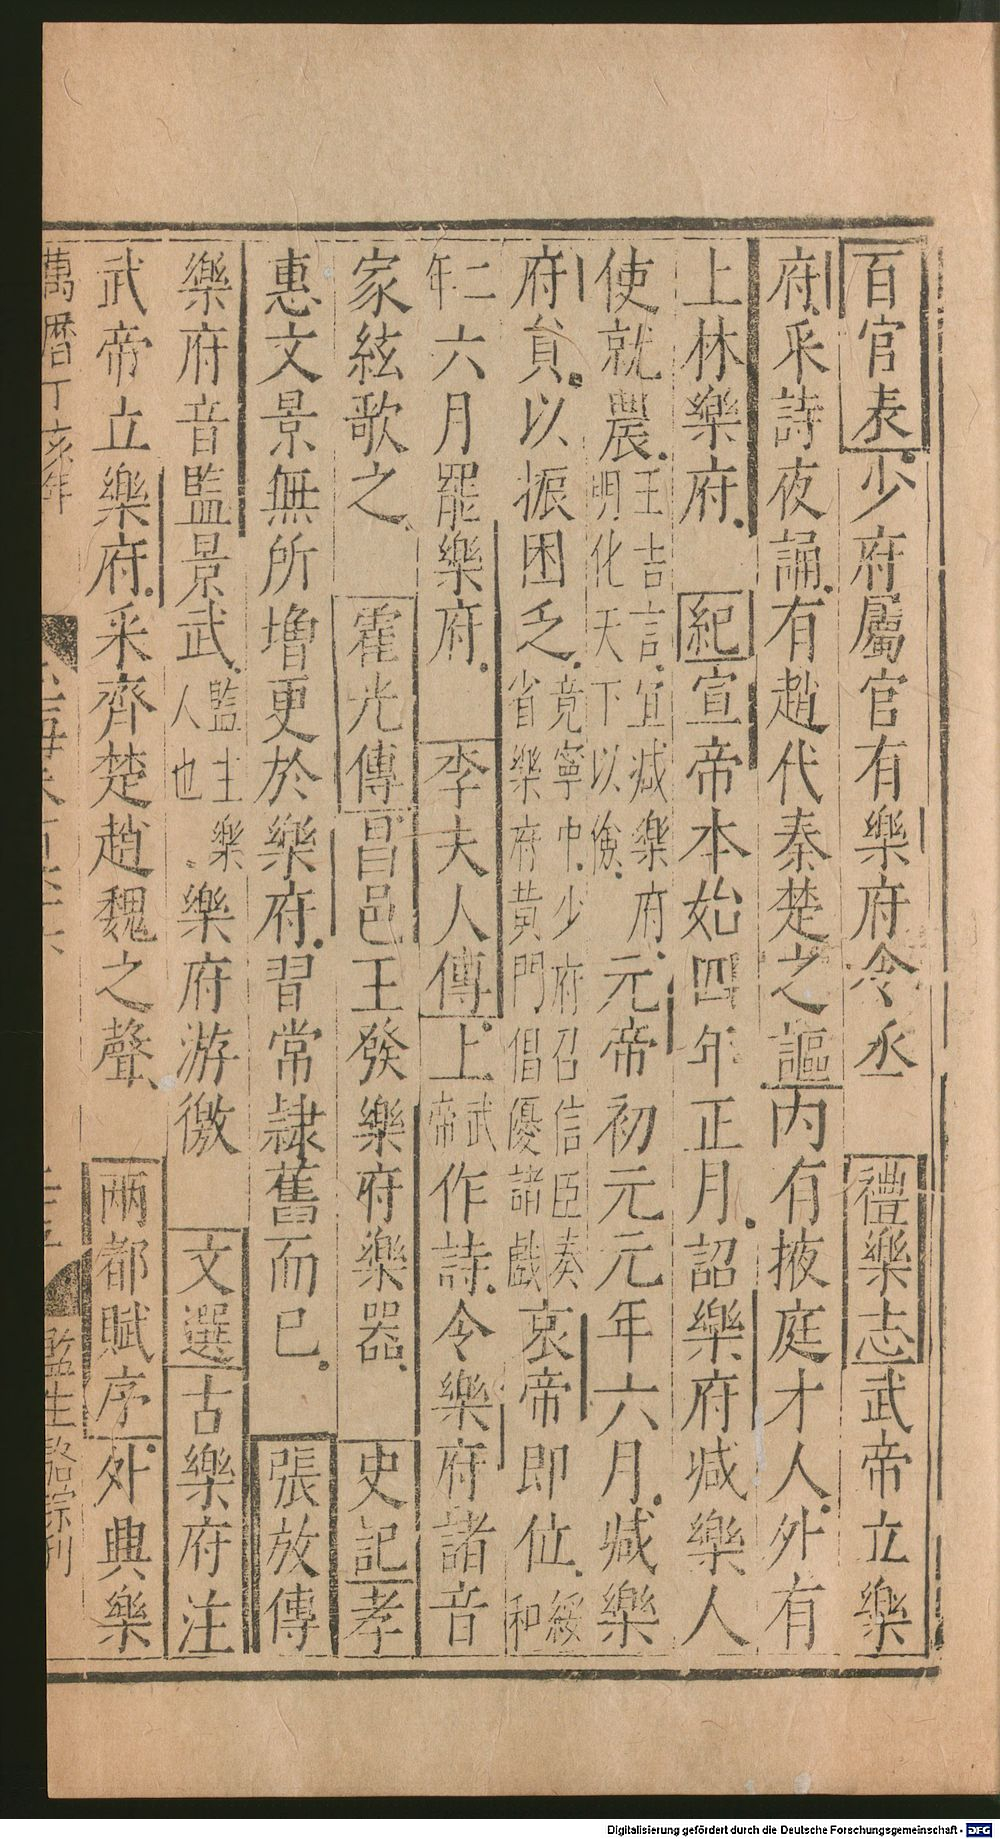 百官表少府屬官有樂府令丞 禮樂志武帝立樂
府采詩夜誦有趙代秦楚之謳內有掖庭才人外有
上林樂府 紀宣帝本始四年正月詔樂府减樂人
使就農王吉言宜减樂府明化天下以儉元帝初元元年六月减樂
府員以振困乏竟寧中少府召信臣奏省樂府黃門倡優諸戲哀帝即位綏和
二年六月罷樂府 李夫人傳上武帝作詩令樂府諸音
家絃歌之 霍光傳昌邑王發樂府樂器 史記孝
惠文景無所増更於樂府習常隷舊而已 張放傳
樂府音監景武監主樂人也樂府游徼 文選古樂府注
武帝立樂府采齊楚趙魏之聲 兩都賦序外典樂
萬曆丁亥年
監生駱宗刊
Digitalisierung gefördert durch die Deutsche Forschungsgemeinschaft - DFG